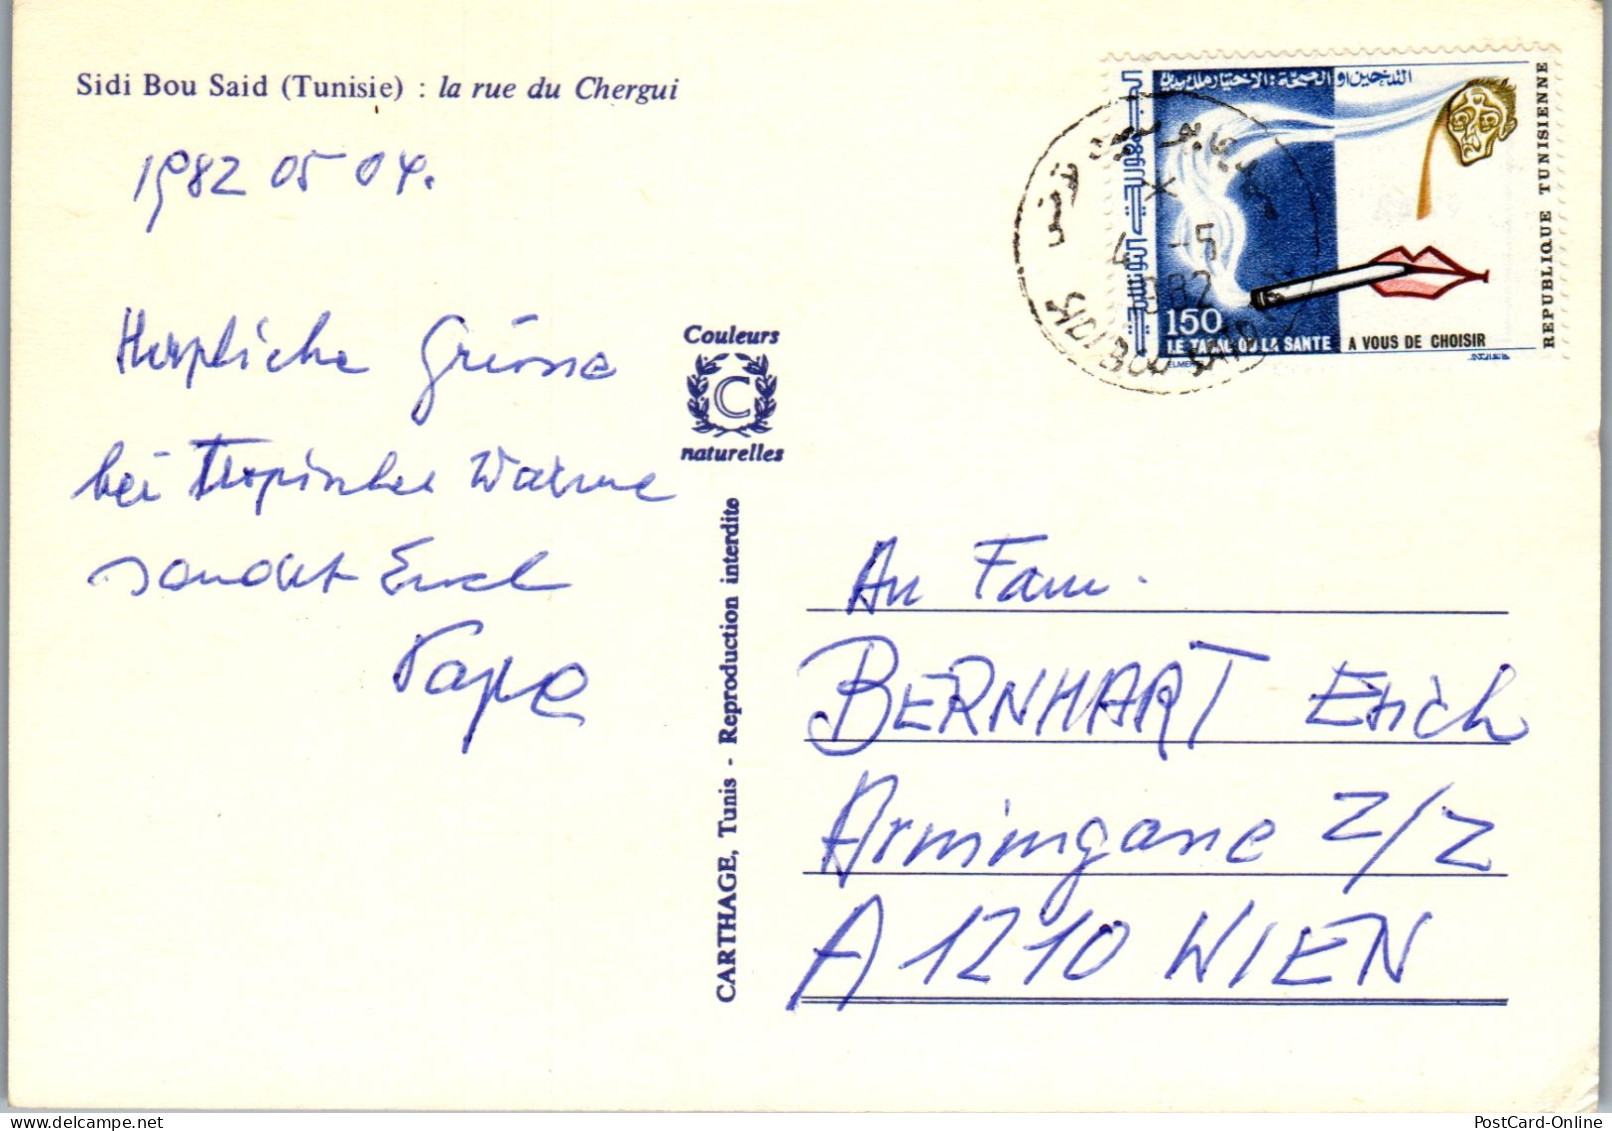 Sidi Bou Said (Tunisie) : la rue du Chergui
1982 05 04.
Herzliche Grüsse
bei tropischer Wärme
sendet Euch
Papa
Couleurs
C
naturelles
CARTHAGE, Tunis - Reproduction interdite
التدخين او الصحة : الاختيار ملك يديك
الجمهورية التونسية
REPUBLIQUE TUNISIENNE
150
LE TABAC OU LA SANTE
A VOUS DE CHOISIR
4 -5
1982
SIDI BOU SAID
An Fam.
BERNHART Erich
Arminngasse 2/2
A 1210 WIEN
PostCard-Online